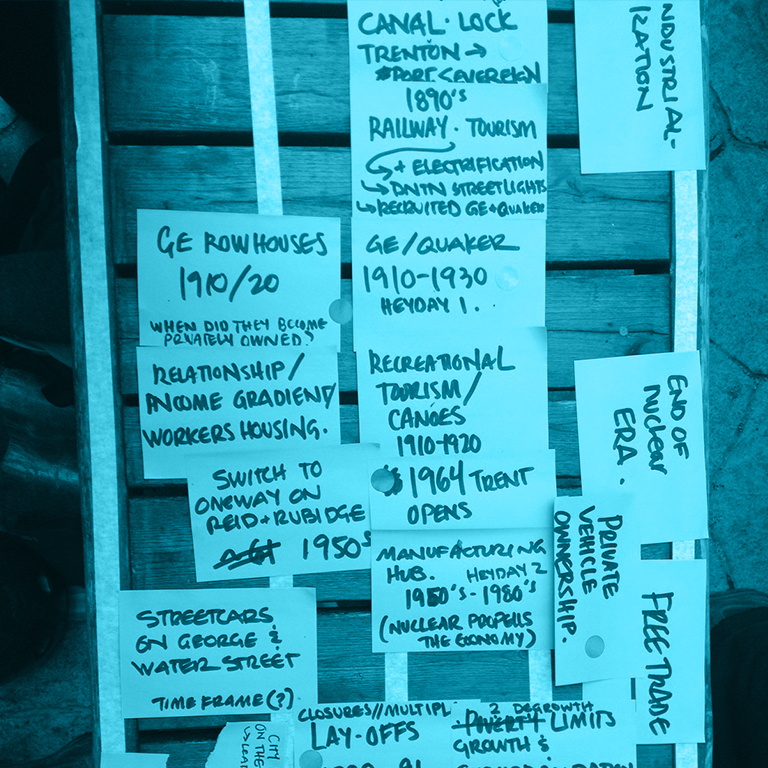 CANAL · LOCK
TRENTON →
PORT SEVEREIGN
1890's
RAILWAY · TOURISM
+ ELECTRIFICATION
DNTN STREETLIGHTS
RECRUITED GE + QUAKER
INDUSTRIAL-
IZATION
GE ROWHOUSES
1910/20
WHEN DID THEY BECOME
PRIVATELY OWNED?
GE/QUAKER
1910-1930
HEYDAY 1.
RELATIONSHIP/
INCOME GRADIENT/
WORKERS HOUSING.
RECREATIONAL
TOURISM/
CANOES
1910-1920
END OF
NUCLEAR
ERA.
SWITCH TO
ONEWAY ON
REID + RUBIDGE
1950s
1964 TRENT
OPENS
PRIVATE
VEHICLE
OWNERSHIP.
MANUFACTURING
HUB. HEYDAY 2
1950's - 1980's
(NUCLEAR PROPELLS
THE ECONOMY)
FREE TRADE
STREETCARS
ON GEORGE &
WATER STREET
TIME FRAME (?)
CLOSURES//MULTIPL
LAY-OFFS
2 DEGROWTH
POVERTY LIMITS
GROWTH &
CITY
ON THE